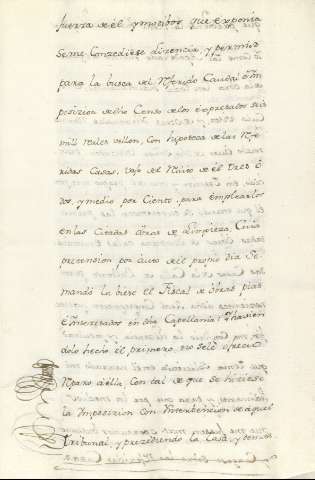 fuerza de él y motibos que exponia
se me Conzediese Lizencia, y permiso
para la busca del Referido Caudal è Ym
posizion de dho Censo de los expresados seis
mil Reales vellon, con hipoteca de las Refe
ridas Casas, vajo del Rédito de él tres è
dos, y medio por Ciento, para emplearlos
en las Citadas obras de Limpieza, Cuia
pretension por auto de el propio dia se
mandò la biese el Fiscal de òbras pias
è Ynteresados en dha Capellania: Y havien
dolo hecho el primero, no se le ofrecio
Reparo à ella, con tal de que se hiciese
la Imposizion con Yntervencion de aquel
Tribunal, y prezediendo la Casa, y